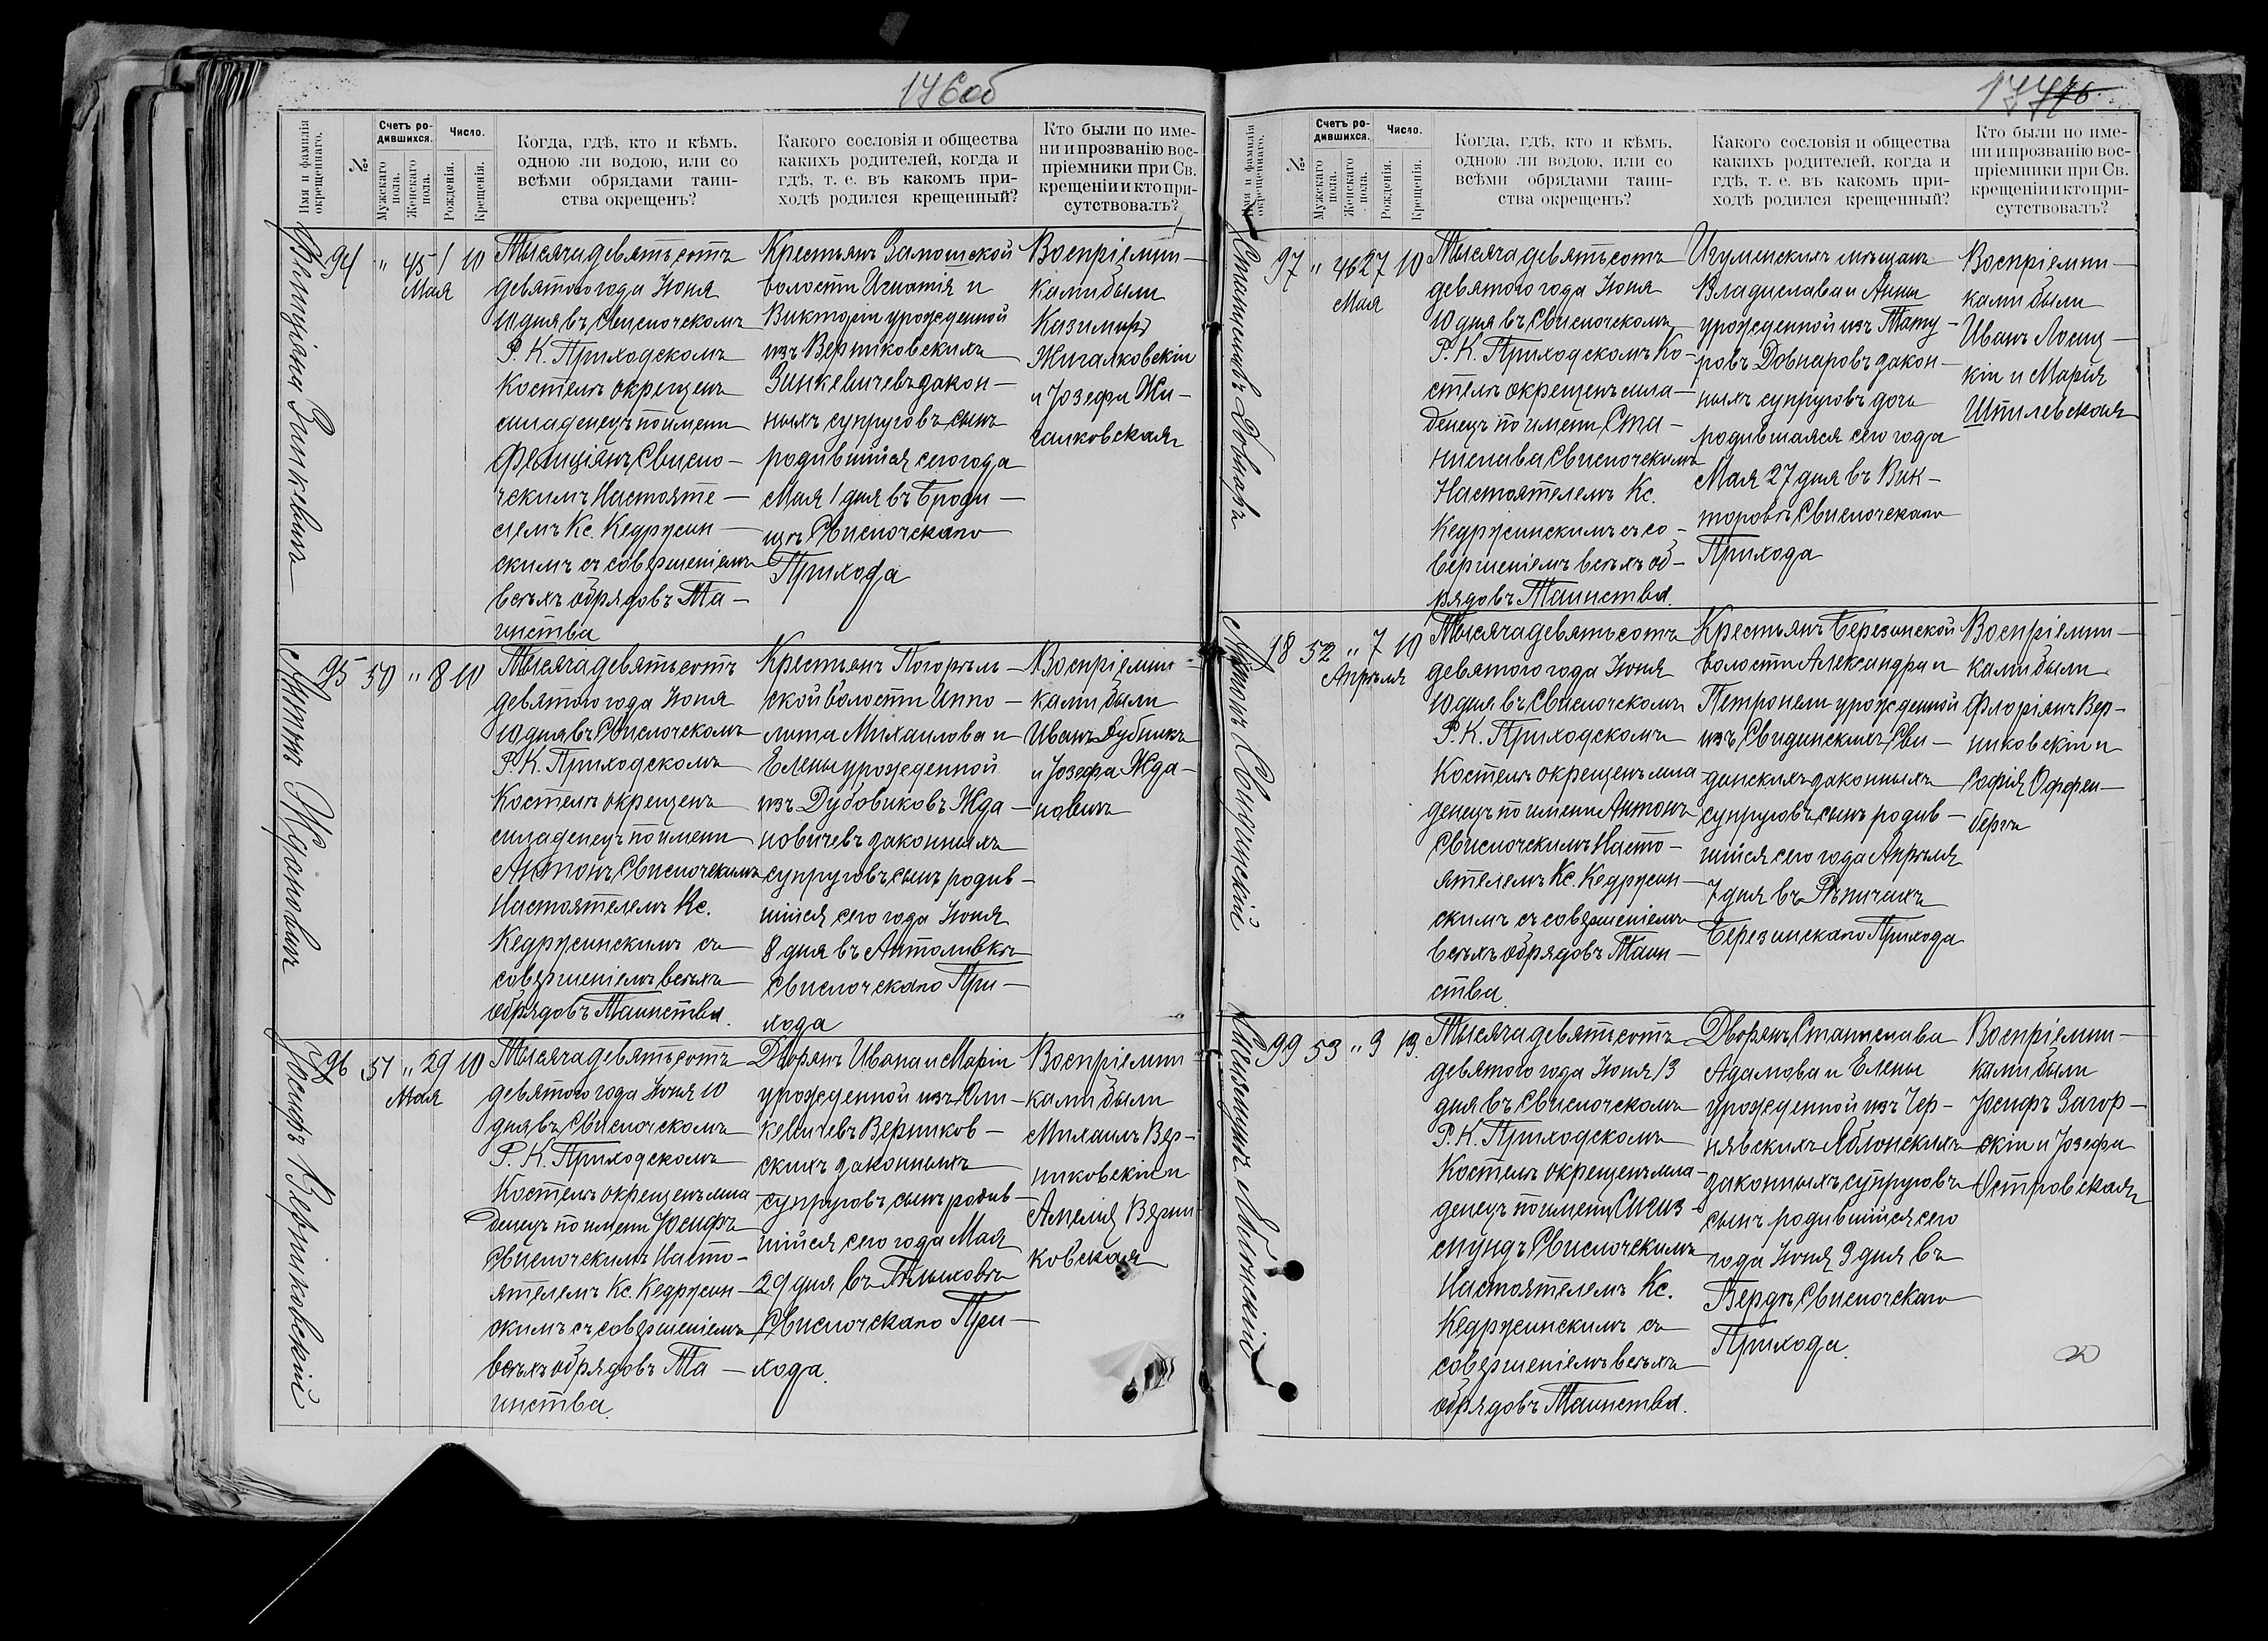 176об
Имя и фамилія окрещеннаго.
№
Счетъ родившихся.
Мужскаго пола.
Женскаго пола.
Число.
Рожденія.
Крещенія.
Когда, гдѣ, кто и кѣмъ,
одною ли водою, или со
всѣми обрядами таин-
ства окрещенъ?
Какого сословія и общества
какихъ родителей, когда и
гдѣ, т. е. въ какомъ при-
ходѣ родился крещенный?
Кто были по име-
ни и прозванію вос-
пріемники при Св.
крещеніи и кто при-
сутствовалъ?
Фелиціянъ Зинкевичъ
94 " 45 1 10
Мая
Тысяча девятьсотъ
девятого года Іюня
10 дня въ Свислочскомъ
Р. К. Приходскомъ
Костелѣ окрещенъ
младенецъ по имени
Фелиціянъ Свисло-
чскимъ Настояте-
лемъ Кс. Кедржин-
скимъ съ совершеніемъ
всѣхъ обрядовъ Та-
инства
Крестьянъ Замошской
волости Игнатія и
Викторіи урожденной
изъ Верниковскихъ
Зинкевичевъ закон-
ныхъ супруговъ сынъ
родившійся сего года
Мая 1 дня въ Броди-
цѣ Свислочскаго
Прихода
Воспріемни-
ками были
Казиміръ
Жигалковскій
и Іозефа Жи-
галковская
Антонъ Ждановичъ
95 50 " 8 10
Тысяча девятьсотъ
девятого года Іюня
10 дня въ Свислочскомъ
Р. К. Приходскомъ
Костелѣ окрещенъ
младенецъ по имени
Антонъ Свислочскимъ
Настоятелемъ Кс.
Кедржинскимъ съ
совершеніемъ всѣхъ
обрядовъ Таинства.
Крестьянъ Погорѣль-
ской волости Иппо-
лита Михаилова и
Елены урожденной
изъ Дубовиковъ Жда-
новичевъ законныхъ
супруговъ сынъ родив-
шійся сего года Іюня
8 дня въ Антоливкѣ
Свислочскаго При-
хода
Воспріемни-
ками были
Иванъ Дубникъ
и Іозефа Жда-
новичъ
Іосифъ Верниковскій
96 51 " 29 10
Мая
Тысяча девятьсотъ
девятого года Іюня 10
дня въ Свислочскомъ
Р. К. Приходскомъ
Костелѣ окрещенъ мла-
денецъ по имени Іосифъ
Свислочскимъ Насто-
ятелемъ Кс. Кедржин-
скимъ съ совершеніемъ
всѣхъ обрядовъ Та-
инства.
Дворянъ Ивана и Маріи
урожденной изъ Юли-
кевичевъ Верников-
скихъ законныхъ
супруговъ сынъ родив-
шійся сего года Мая
29 дня въ
Свислочскаго При-
хода.
Воспріемни-
ками были
Михаилъ Вер-
никовскій и
Амелія Верни-
ковская
177
Имя и фамилія окрещеннаго.
№
Счетъ родившихся.
Мужскаго пола.
Женскаго пола.
Число.
Рожденія.
Крещенія.
Когда, гдѣ, кто и кѣмъ,
одною ли водою, или со
всѣми обрядами таин-
ства окрещенъ?
Какого сословія и общества
какихъ родителей, когда и
гдѣ, т. е. въ какомъ при-
ходѣ родился крещенный?
Кто были по име-
ни и прозванію вос-
пріемники при Св.
крещеніи и кто при-
сутствовалъ?
Довнаръ
97 " 46 27 10
Мая
Тысяча девятьсотъ
девятого года Іюня
10 дня въ Свислочскомъ
Р. К. Приходскомъ Ко-
стелѣ окрещенъ мла-
денецъ по имени Ста-
нислава Свислочскимъ
Настоятелемъ Кс.
Кедржинскимъ съ со-
вершеніемъ всѣхъ об-
рядовъ Таинства.
Игуменскихъ мѣщанъ
Владислава и Анны
урожденной изъ Мату-
ровъ Довнаровъ закон-
ныхъ супруговъ дочь
родившаяся сего года
Мая 27 дня въ Вик-
торовѣ Свислочскаго
Прихода
Воспріемни-
ками были
Иванъ Лосиц-
кій и Марія
Шпилевская
Антонъ Свидинскій
18 52 " 7 10
Апрѣля
Тысяча девятьсотъ
девятого года Іюня
10 дня въ Свислочскомъ
Р. К. Приходскомъ
Костелѣ окрещенъ мла-
денецъ по имени Антонъ
Свислочскимъ Насто-
ятелемъ Кс. Кедржин-
скимъ съ совершеніемъ
всѣхъ обрядовъ Таин-
ства.
Крестьянъ Березинской
волости Александра и
Петронели урожденной
изъ Свидинскихъ Сви-
динскихъ законныхъ
супруговъ сынъ родив-
шійся сего года Апрѣля
7 дня въ
Березинскаго Прихода
Воспріемни-
ками были
Флоріянъ Вер-
никовскій и
Софія Оффен-
бергъ
Сигизмундъ Яблонскій
99 53 " 3 13.
Тысяча девятьсотъ
девятого года Іюня 13
дня въ Свислочскомъ
Р. К. Приходскомъ
Костелѣ окрещенъ мла-
денецъ по имени Сигиз-
мундъ Свислочскимъ
Настоятелемъ Кс.
Кедржинскимъ съ
совершеніемъ всѣхъ
обрядовъ Таинства.
Дворянъ Станислава
Адамова и Елены
урожденной изъ Чер-
нявскихъ Яблонскихъ
законныхъ супруговъ
сынъ родившійся сего
года Іюня 3 дня въ
Вердѣ Свислочскаго
Прихода.
Воспріемни-
ками были
Іосифъ Загор-
скій и Іозефа
Островская